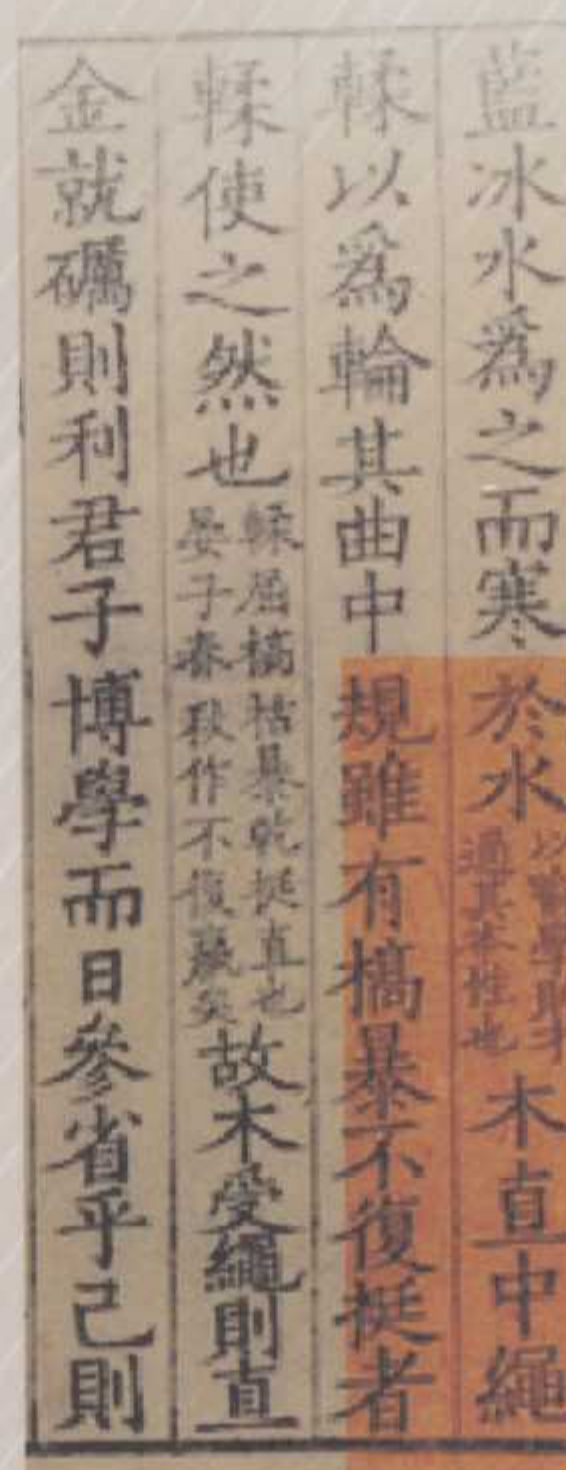 藍冰水爲之而寒於水以喻學則才過其本性也木直中繩
輮以爲輪其曲中規雖有槁暴不復挺者
輮使之然也輮屈槁枯暴乾挺直也晏子春秋作不復羸矣故木受繩則直
金就礪則利君子博學而日參省乎己則